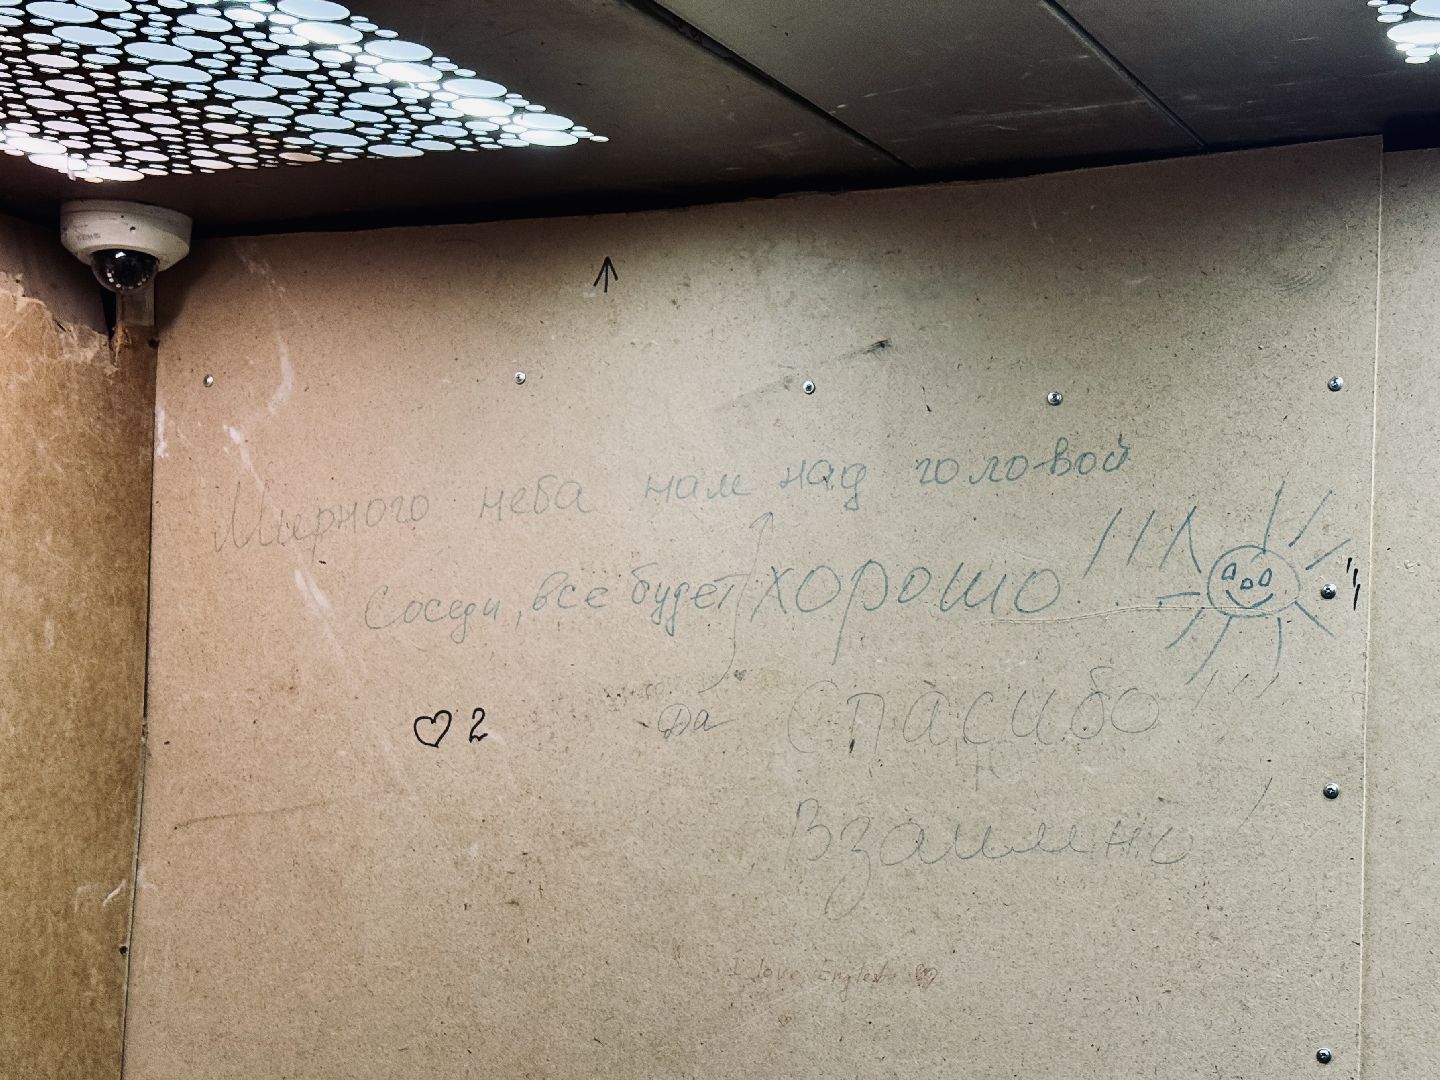 Мирного неба нам над головой
Соседи, все будет хорошо!!!
♡ 2
Да Спасибо!!!
Взаимно!
I love English ♡